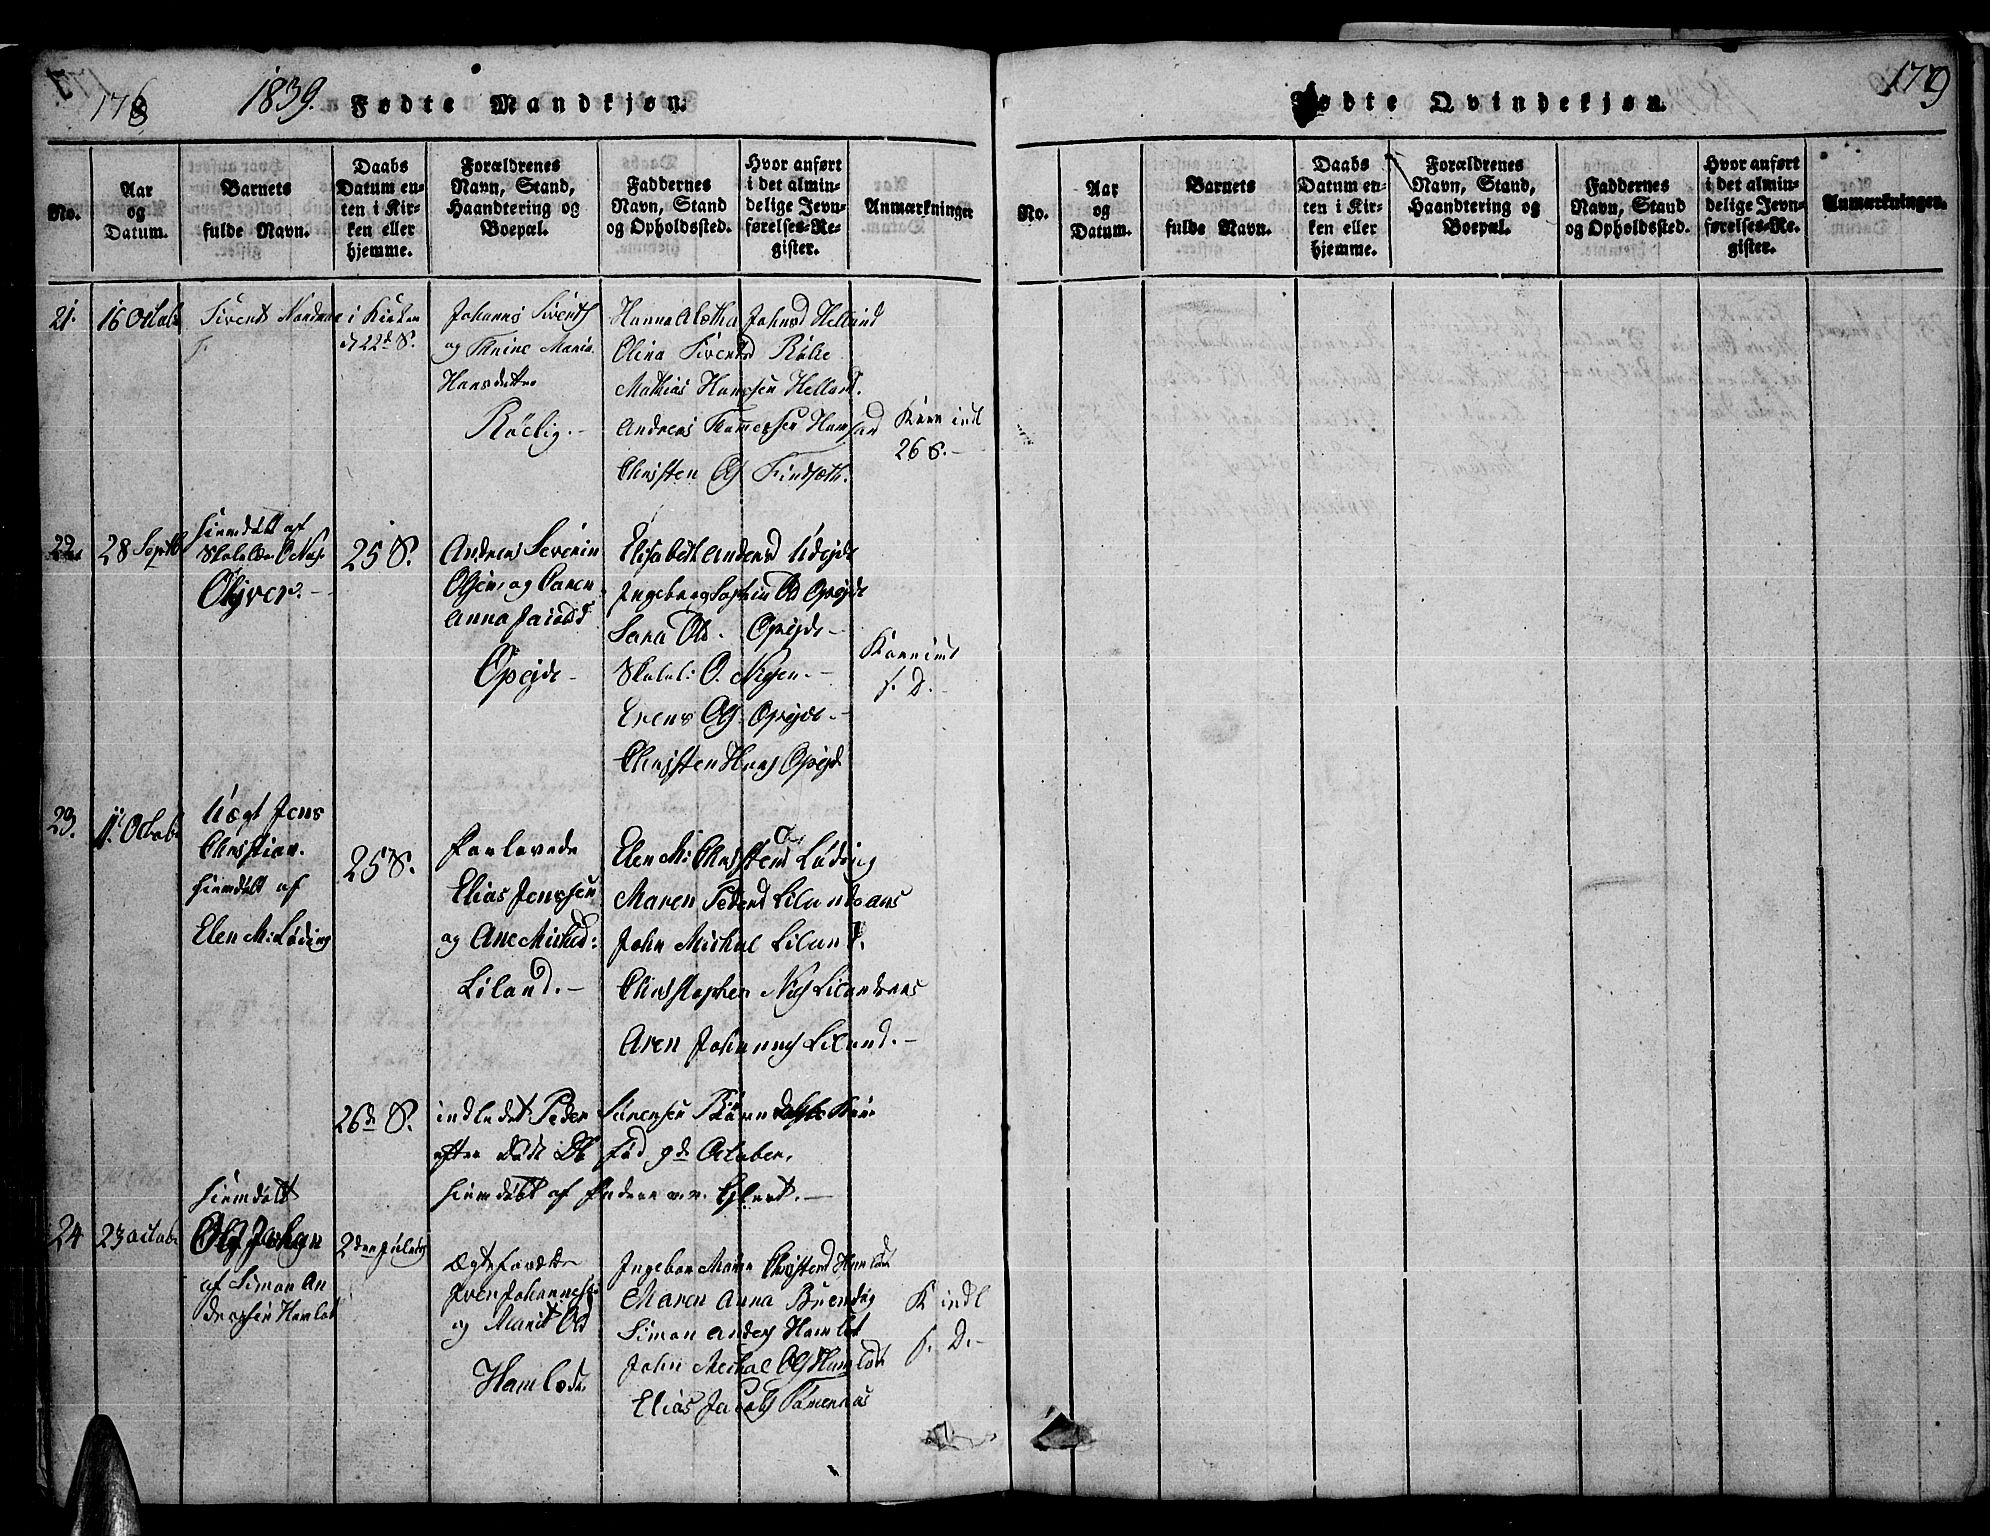 178
1839.
Fødte Mandkjøn.
No.
Aar
og
Datum.
Barnets
fulde Navn.
Daabs
Datum en-
ten i Kir-
ken eller
hjemme.
Forældrenes
Navn, Stand,
Haandtering og
Boepæl.
Faddernes
Navn, Stand
og Opholdssted.
Hvor anført
i det almin-
delige Jevn-
førelses-Re-
gister.
Anmærkninger
21.
16 Octob
Sivert
i Kirken
d 22d S.
Johannes Sivertsen
og Maria
Hansdatter
Røelig.
Hanna Johnsd Helland
Olina Sivertsd
Mathias Hanssen Helland.
Andreas Thomessen
Christen Ols Findsæth.
Kone indl
26 S.
22
28 Septb
hiemdøbt af
Skolel. O Niss
Olyver.
25 S.
Andreas Severin
Olsen, og Caren
Anna
Opeyde
Elisabeth Andersd
Ingeborg Sophia Od Opeyde
Sara Od. Opeyde
Skolel: O. Nissen.
Ols Opeyde.
Christen Hans Opeyde
Konen indl
s. D.
23.
11 Octob
Uægt Jens
Christian.
hiemdøbt af
Elen M: Løding
25 S.
Forlovede
Elias Jenssen
og Ane Mickelsd:
Liland.
Elen M: Christensd Løding
Maren Pedersd Lilandsaas
John Mickal Liland.
Christopher Nils Lilandsaas
Aren Johannes Liland.
26de S.
indledet Peder Sørensen Kone
efter Dødt B. fød 9de October,
hiemdøbt af
24
23 octob
hiemdøbt
Ole Johan
af Simon An
derssen Hamlot
2den Juledag
Ægtefored
Iver Johannes
og Marit Od
Hamlode
Ingebor Maria Christensd Hamlot
Maren Anna
Simon Anders Hamlot
John Mickal Ols Hamlot
Elias Jacobs
K indl
s. D.
179
Fødte Qvindekjøn.
No.
Aar
og
Datum.
Barnets
fulde Navn.
Daabs
Datum en-
ten i Kir-
ken eller
hjemme.
Forældrenes
Navn, Stand,
Haandtering og
Boepæl.
Faddernes
Navn, Stand
og Opholdssted.
Hvor anført
i det almin-
delige Jevn-
førelses-Re-
gister.
Anmærkninger.